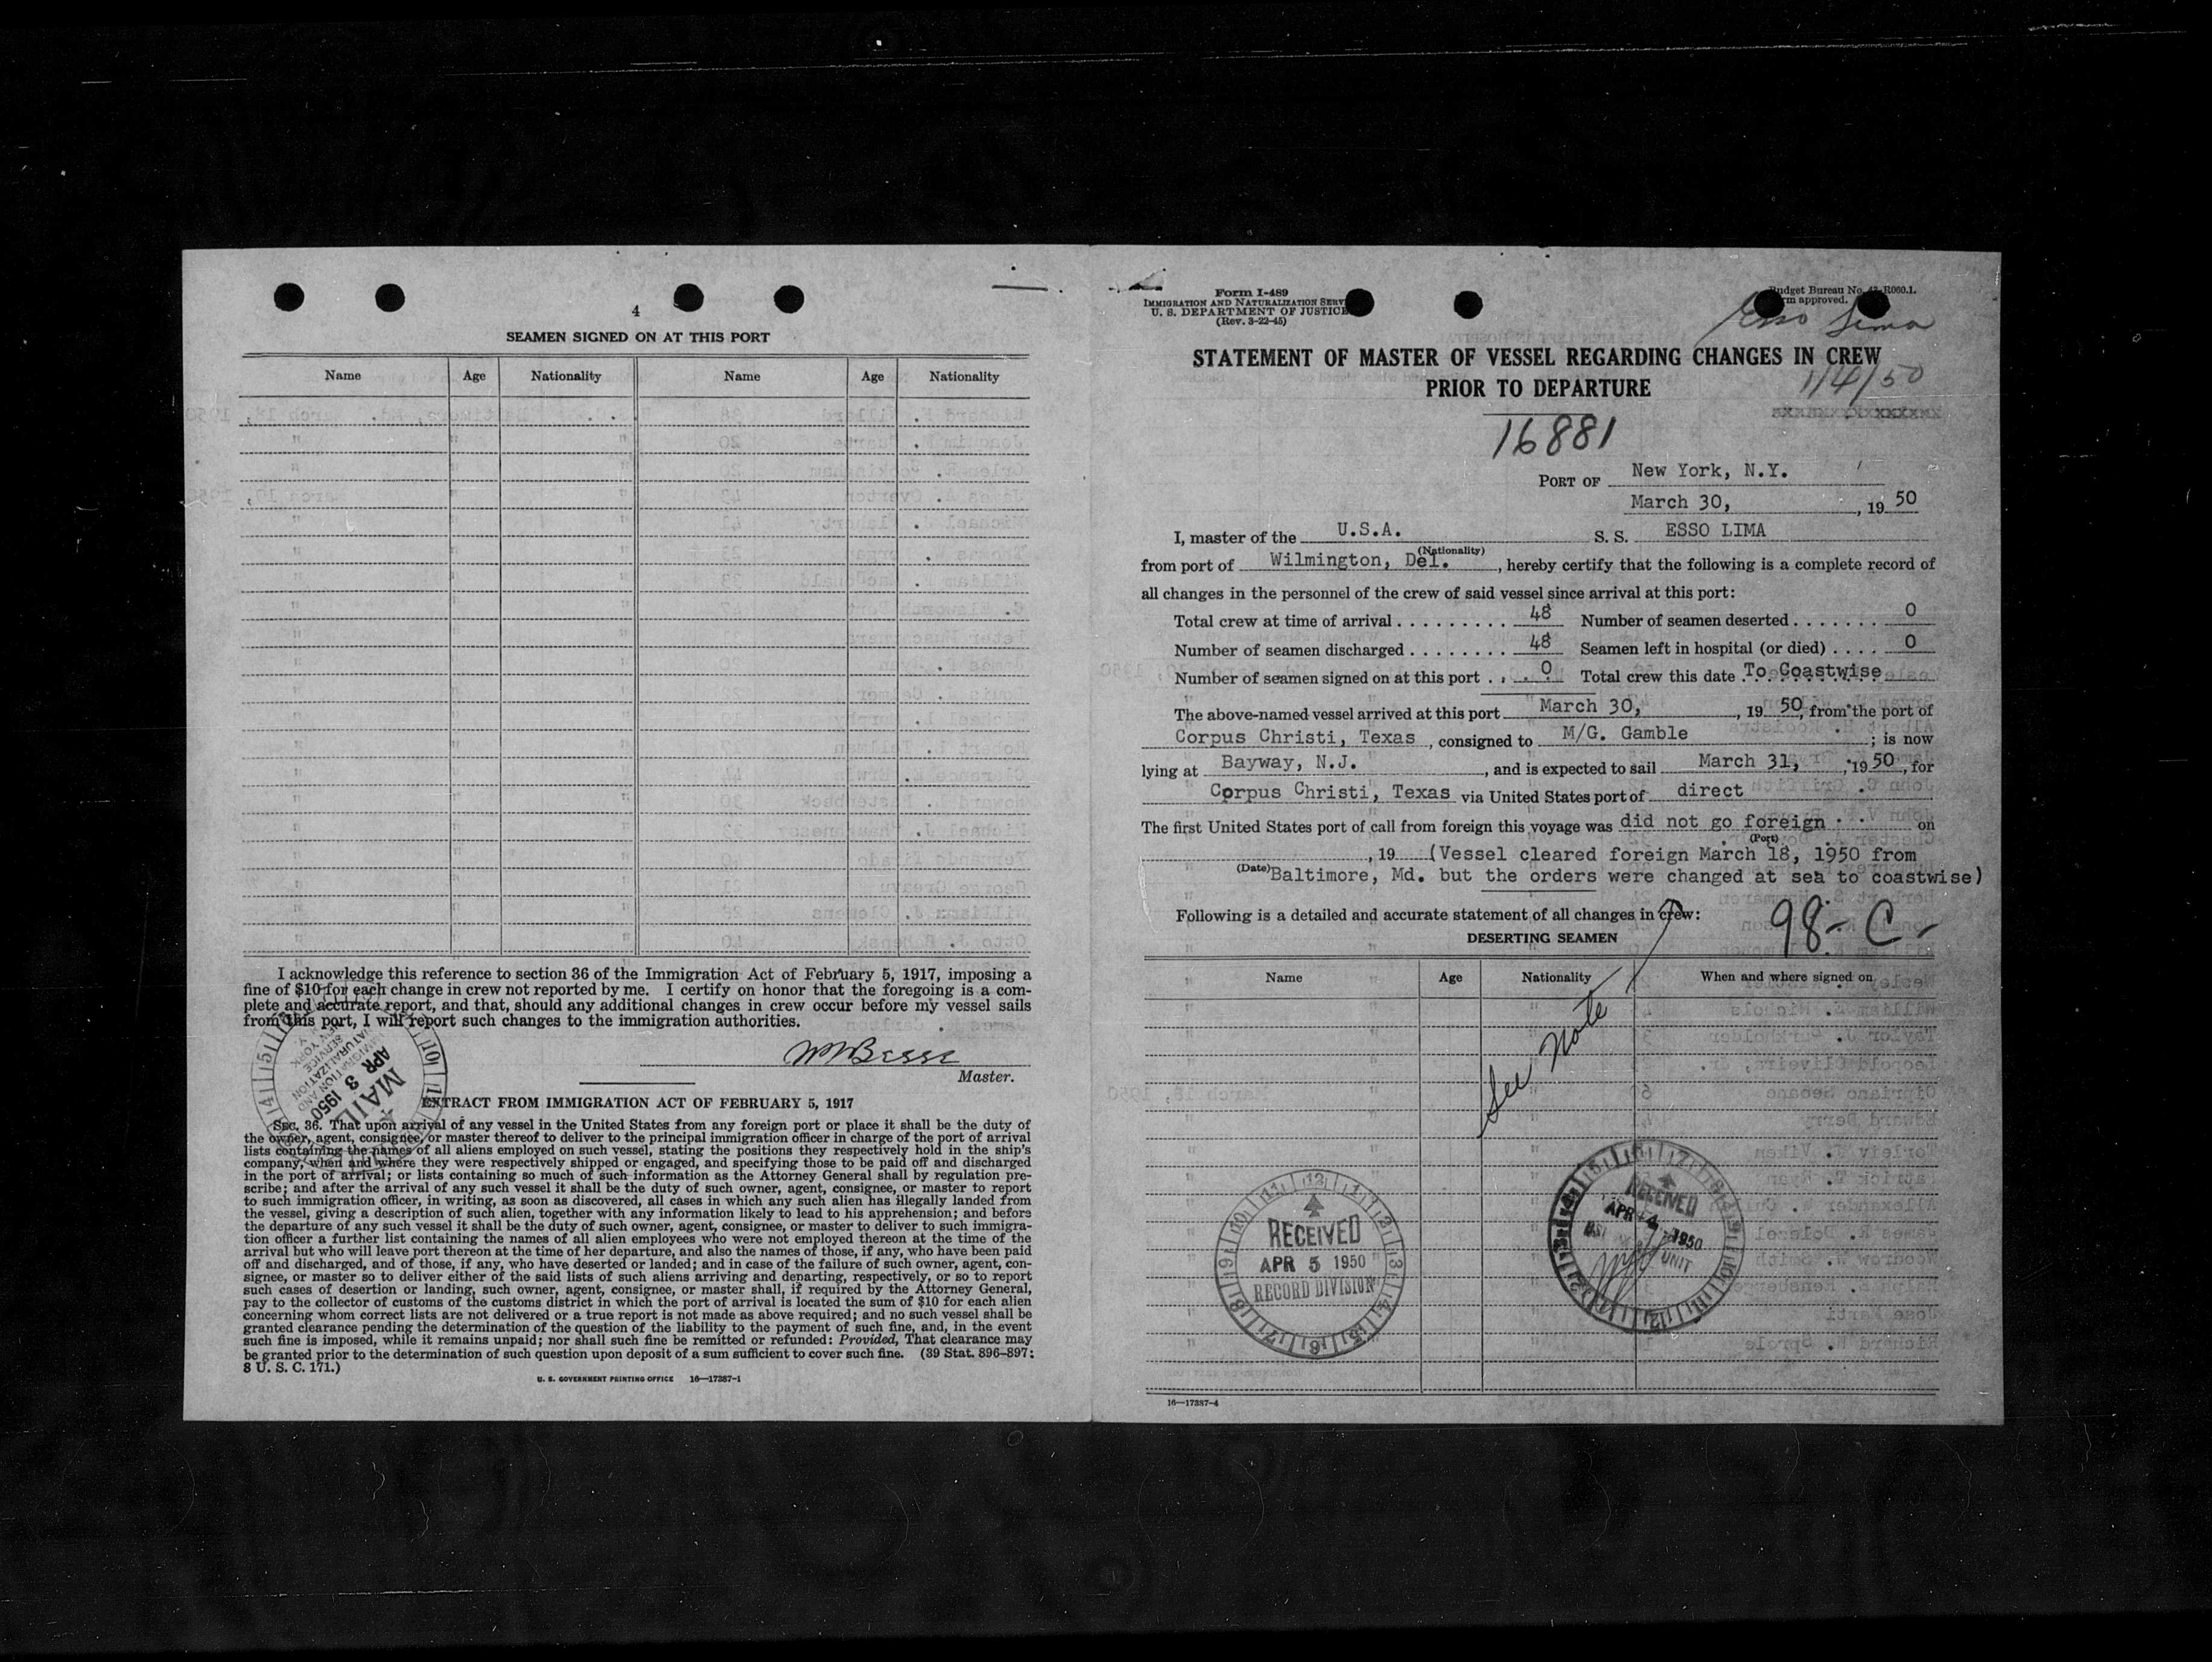 4
SEAMEN SIGNED ON AT THIS PORT
Name Age Nationality Name Age Nationality
I acknowledge this reference to section 36 of the Immigration Act of February 5, 1917, imposing a
fine of $10 for each change in crew not reported by me. I certify on honor that the foregoing is a com-
plete and accurate report, and that, should any additional changes in crew occur before my vessel sails
from this port, I will report such changes to the immigration authorities.
Master.
MAIL
APR 3 1950
EXTRACT FROM IMMIGRATION ACT OF FEBRUARY 5, 1917
SEC. 36. That upon arrival of any vessel in the United States from any foreign port or place it shall be the duty of
the owner, agent, consignee, or master thereof to deliver to the principal immigration officer in charge of the port of arrival
lists containing the names of all aliens employed on such vessel, stating the positions they respectively hold in the ship's
company, when and where they were respectively shipped or engaged, and specifying those to be paid off and discharged
in the port of arrival; or lists containing so much of such information as the Attorney General shall by regulation pre-
scribe; and after the arrival of any such vessel it shall be the duty of such owner, agent, consignee, or master to report
to such immigration officer, in writing, as soon as discovered, all cases in which any such alien has illegally landed from
the vessel, giving a description of such alien, together with any information likely to lead to his apprehension; and before
the departure of any such vessel it shall be the duty of such owner, agent, consignee, or master to deliver to such immigra-
tion officer a further list containing the names of all alien employees who were not employed thereon at the time of the
arrival but who will leave port thereon at the time of her departure, and also the names of those, if any, who have been paid
off and discharged, and of those, if any, who have deserted or landed; and in case of the failure of such owner, agent, con-
signee, or master so to deliver either of the said lists of such aliens arriving and departing, respectively, or so to report
such cases of desertion or landing, such owner, agent, consignee, or master shall, if required by the Attorney General,
pay to the collector of customs of the customs district in which the port of arrival is located the sum of $10 for each alien
concerning whom correct lists are not delivered or a true report is not made as above required; and no such vessel shall be
granted clearance pending the determination of the question of the liability to the payment of such fine, and, in the event
such fine is imposed, while it remains unpaid; nor shall such fine be remitted or refunded: Provided, That clearance may
be granted prior to the determination of such question upon deposit of a sum sufficient to cover such fine. (39 Stat. 896–897;
8 U. S. C. 171.)
U. S. GOVERNMENT PRINTING OFFICE 16—17387-1
Form I-489
IMMIGRATION AND NATURALIZATION SERV
U. S. DEPARTMENT OF JUSTICE
(Rev. 3-22-45)
Budget Bureau No. R060.1.
approved.
Esso Lima
STATEMENT OF MASTER OF VESSEL REGARDING CHANGES IN CREW
PRIOR TO DEPARTURE
1/4/50
16881
PORT OF New York, N.Y.
March 30, , 19 50
I, master of the U.S.A. S. S. ESSO LIMA
(Nationality)
from port of Wilmington, Del. , hereby certify that the following is a complete record of
all changes in the personnel of the crew of said vessel since arrival at this port:
Total crew at time of arrival . . . . . . . . . 48 Number of seamen deserted . . . . . . . 0
Number of seamen discharged . . . . . . . . 48 Seamen left in hospital (or died) . . . . 0
Number of seamen signed on at this port . . . 0 Total crew this date To Coastwise
The above-named vessel arrived at this port March 30, , 19 50, from the port of
Corpus Christi, Texas , consigned to M/G. Gamble ; is now
lying at Bayway, N.J. , and is expected to sail March 31, , 19 50, for
Corpus Christi, Texas via United States port of direct
The first United States port of call from foreign this voyage was did not go foreign on
(Port)
, 19 (Vessel cleared foreign March 18, 1950 from
(Date) Baltimore, Md. but the orders were changed at sea to coastwise)
Following is a detailed and accurate statement of all changes in crew:
98-C-
DESERTING SEAMEN
Name Age Nationality When and where signed on
See Note
RECEIVED
APR 5 1950
RECORD DIVISION
RECEIVED
APR 4 1950
UNIT
16—17387-4